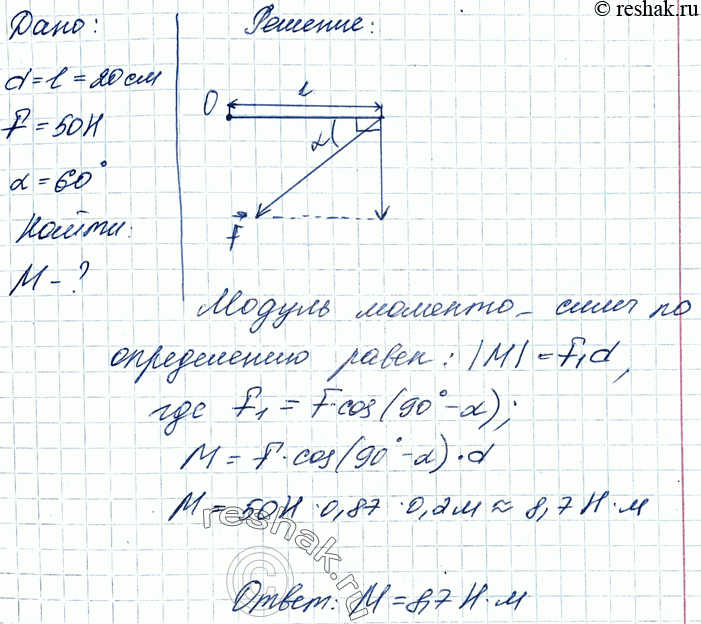 © reshak.ru
Дано:
d = l = 20 см
F = 50 Н
α = 60°
Найти:
M - ?
Решение:
l
O
α
F
Модуль момента силы по
определению равен: |M| = F₁d,
где F₁ = F·cos(90° - α);
M = F·cos(90° - α)·d
M = 50Н · 0,87 · 0,2м ≈ 8,7 Н·м
reshak.ru
©
Ответ: M = 8,7 Н·м